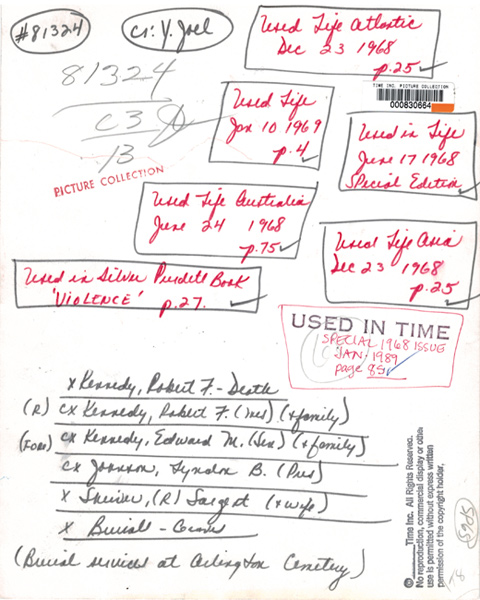 #81324
cr: Y. Joel
Used Life Atlantic
Dec 23 1968
p.25
TIME INC. PICTURE COLLECTION
000830664
81324
C3
13
PICTURE COLLECTION
Used Life
Jan 10 1969
p.4
Used in Life
June 17 1968
Special Edition
Used Life Australia
June 24 1968
p.75
Used Life Asia
Dec 23 1968
p.25
Used in Silver Burdell Book
'VIOLENCE' p.27.
USED IN TIME
SPECIAL 1968 ISSUE
JAN. 1989
page 85
x Kennedy, Robert F. - Death
(R) cx Kennedy, Robert F. (Mrs) (+family)
cx Kennedy, Edward M. (Sen) (+family)
cx Johnson, Lyndon B. (Pres)
x Shriver, (R) Sargent (+wife)
x Burials -
(Burial services at Arlington Cemetery)
© Time Inc. All Rights Reserved.
No reproduction, commercial display or other
use is permitted without express written
permission of the copyright holder,